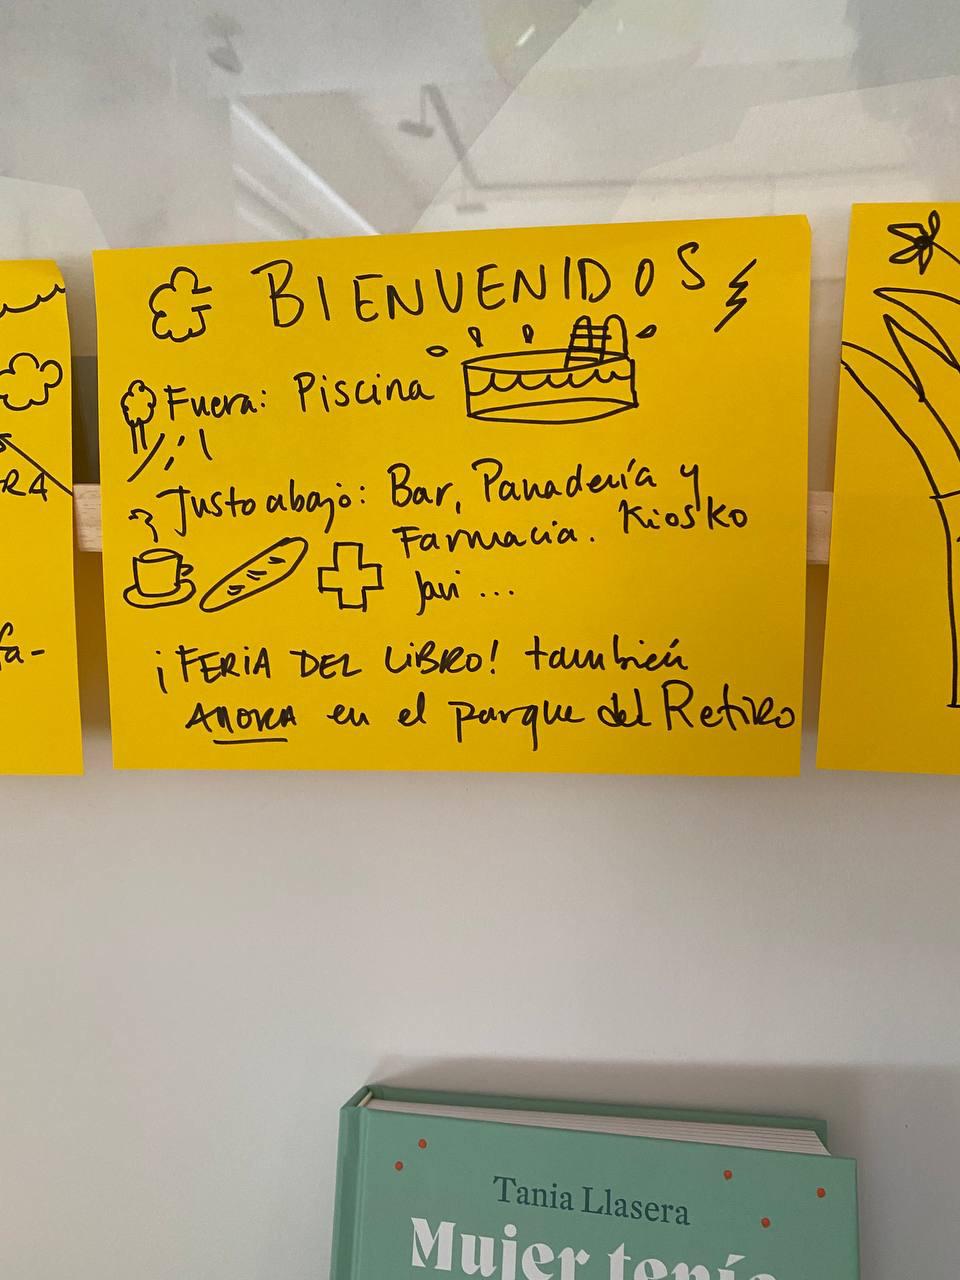 BIENVENIDOS
Fuera: Piscina
Justo abajo: Bar, Panadería y
Farmacia. Kiosko
Javi ...
¡FERIA DEL LIBRO! también
AHORA en el parque del Retiro
RA
fa-
Tania Llasera
Mujer tenía